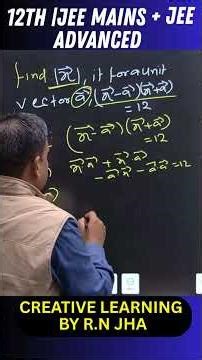 12TH |JEE MAINS + JEE
ADVANCED
find |x⃗|, if for a unit
vector a⃗, (x⃗-a⃗)(x⃗+a⃗)
=12
(x⃗-a⃗)(x⃗+a⃗)
=12
x⃗x⃗ + x⃗a⃗
-a⃗x⃗ - a⃗a⃗ =12
CREATIVE LEARNING
BY R.N JHA